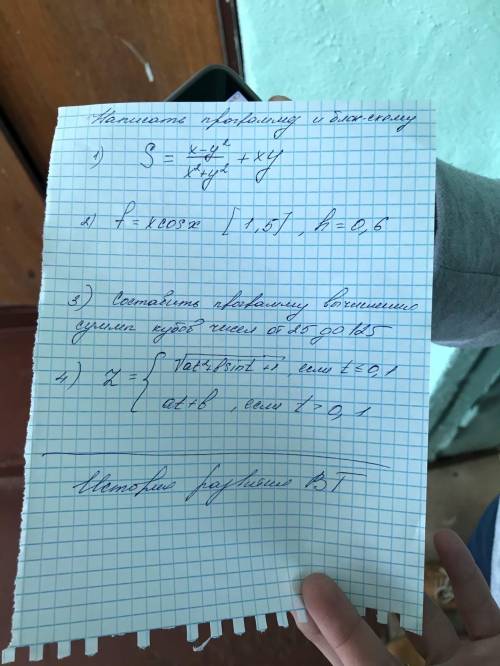 Написать программу и блок-схему
1) S = x-y²/x²+y² + xy
2) f = x cosx [1,5], h = 0,6
3) Составить программу вычисления
суммы кубов чисел от 25 до 125
4) Z = { √at²+bsint+1, если t≤0,1
at+b, если t>0,1
История развития ВТ